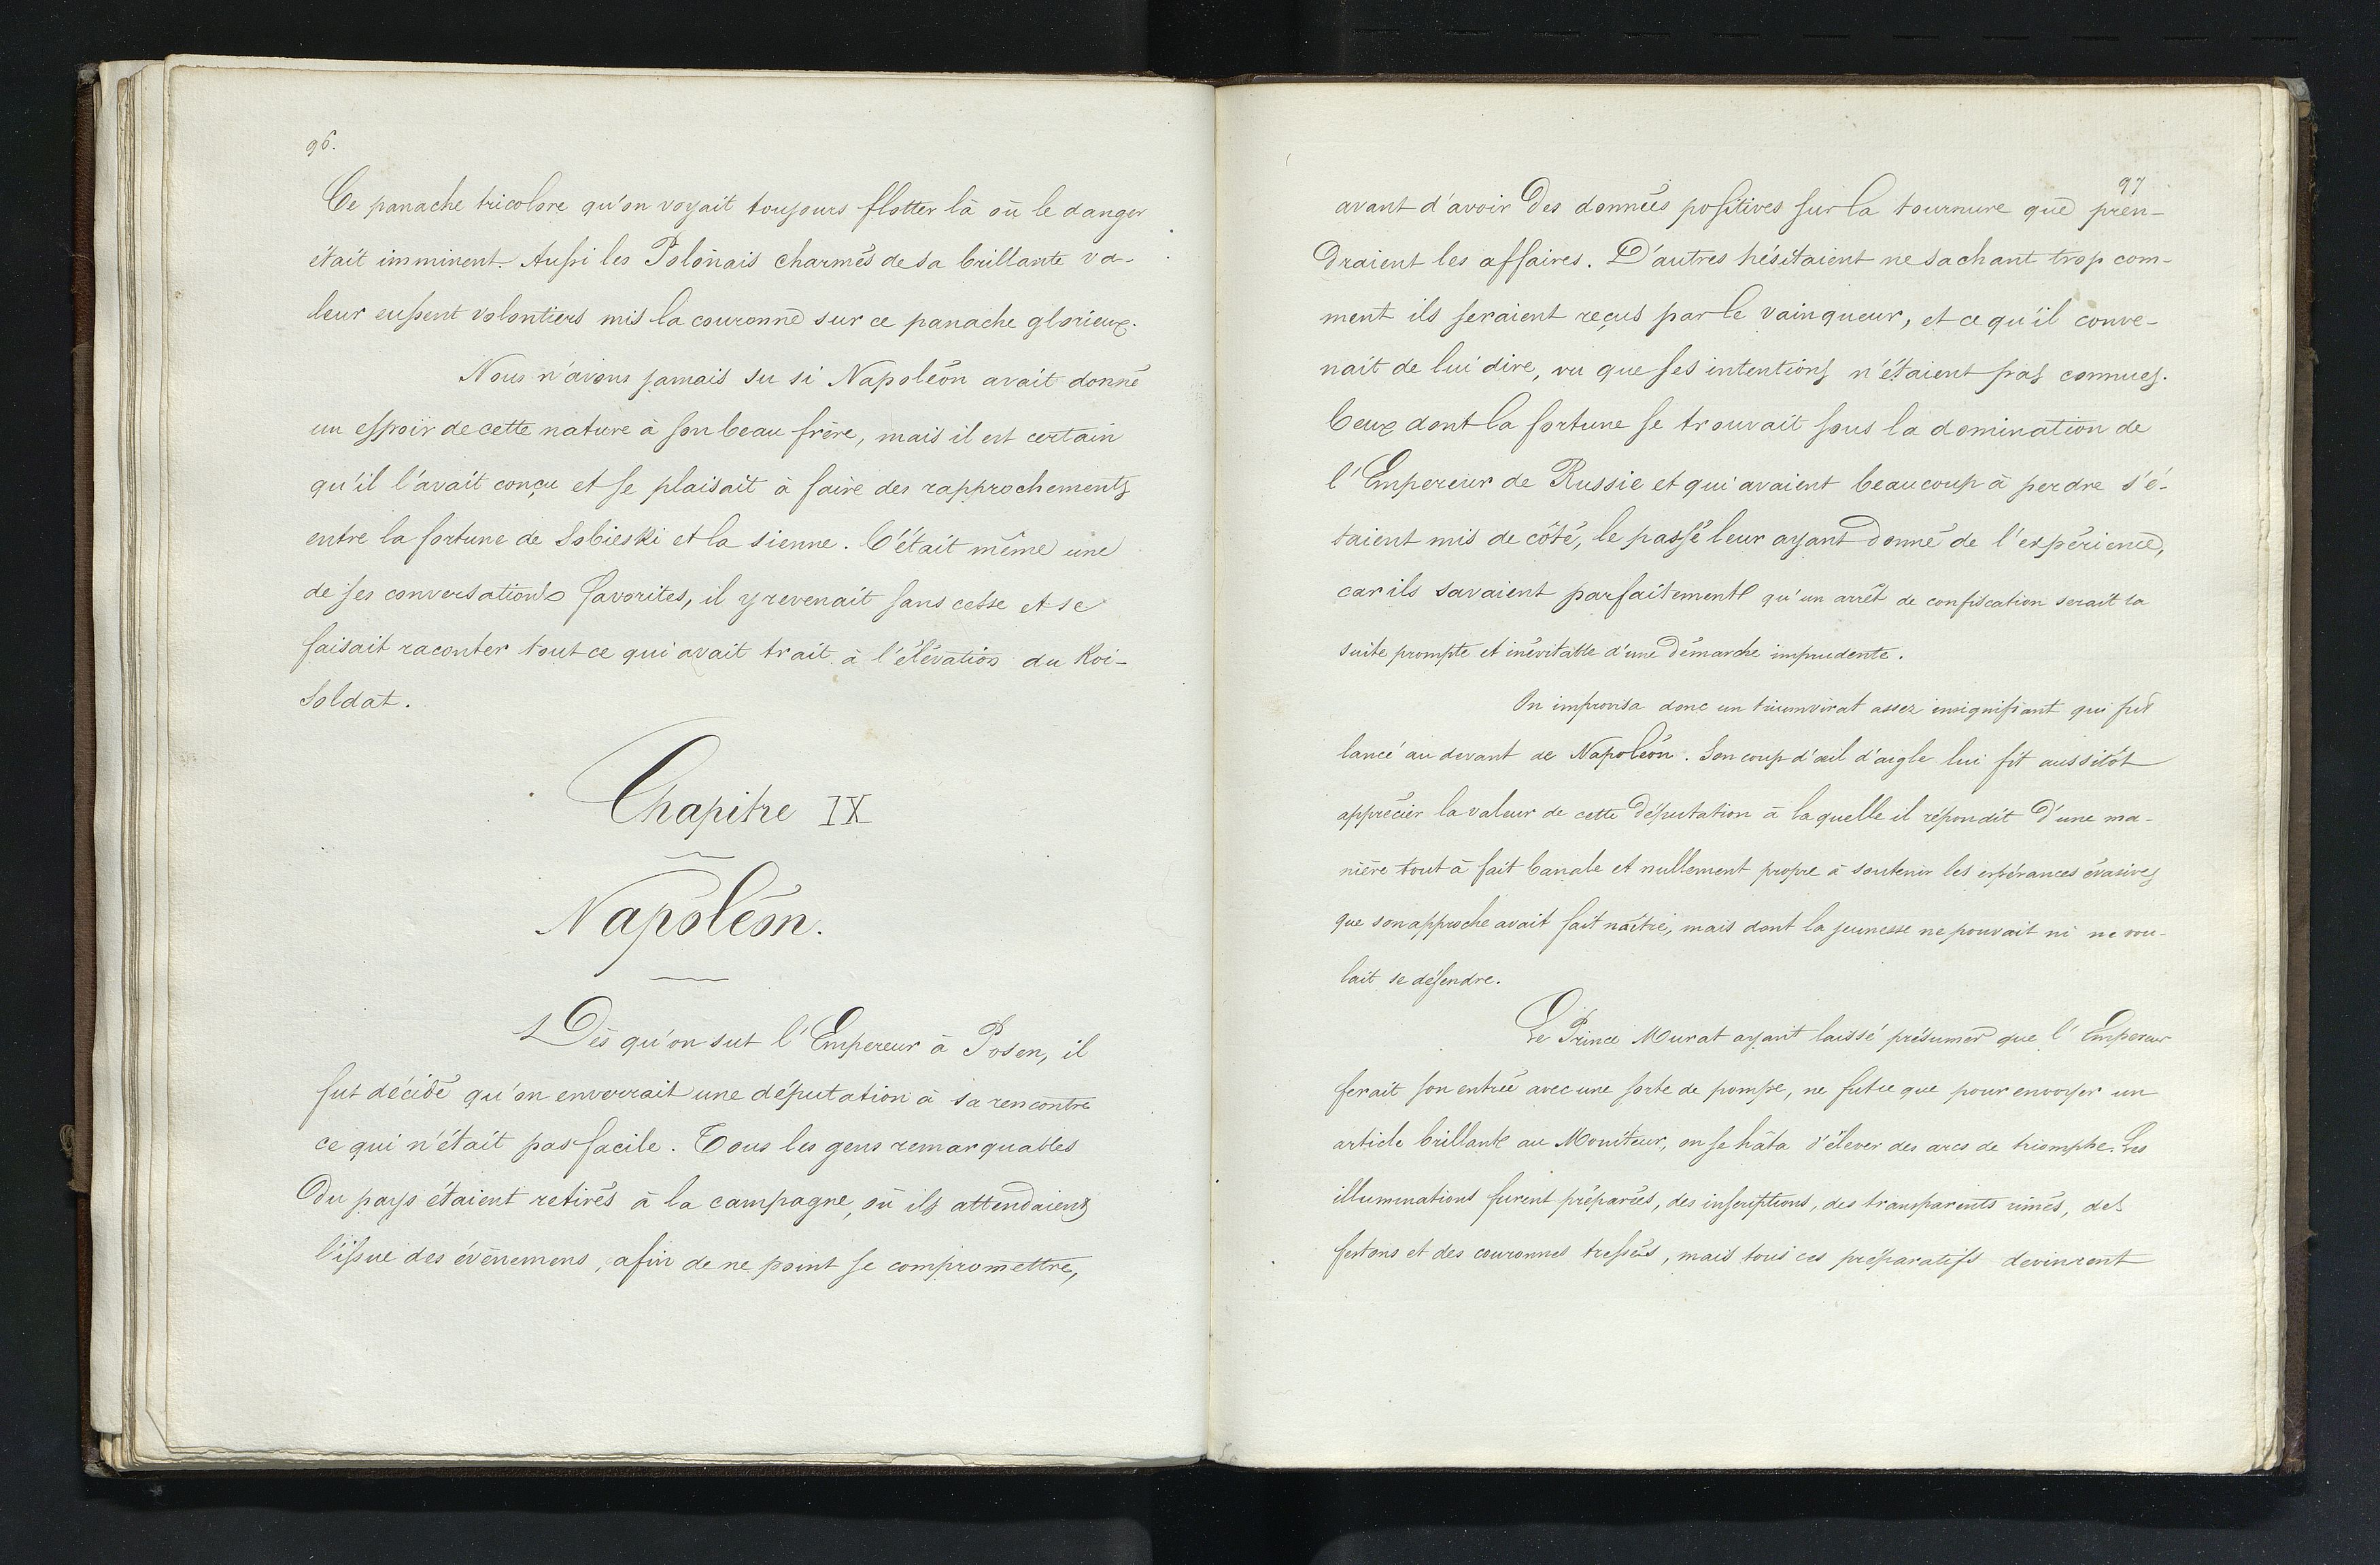 96.
Ce panache tricolore qu'on voyait toujours flotter là où le danger
était imminent. Aussi les Polonais charmés de sa brillante va-
leur eussent volontiers mis la couronne sur ce panache glorieux.
Nous n'avons jamais su si Napoléon avait donné
un espoir de cette nature à son beau frère, mais il est certain
qu'il l'avait conçu et se plaisait à faire des rapprochements
entre la fortune de Sobieski et la sienne. C'était même une
de ses conversations favorites, il y revenait sans cesse et se
faisait raconter tout ce qui avait trait à l'élévation du Roi-
Soldat.
Chapitre IX
Napoléon.
Dès qu'on sut l'Empereur à Posen, il
fut décidé qu'on enverrait une députation à sa rencontre
ce qui n'était pas facile. Tous les gens remarquables
du pays étaient retirés à la campagne, où ils attendaient
l'issue des événemens, afin de ne point se compromettre,
97
avant d'avoir des données positives sur la tournure que pren-
draient les affaires. D'autres hésitaient ne sachant trop com-
ment ils seraient reçus par le vainqueur, et ce qu'il conve-
nait de lui dire, vu que ses intentions n'étaient pas connues.
Ceux dont la fortune se trouvait sous la domination de
l'Empereur de Russie et qui avaient beaucoup à perdre s'é-
taient mis de côté, le passé leur ayant donné de l'expérience,
car ils savaient parfaitement qu'un arrêt de confiscation serait la
suite prompte et inévitable d'une démarche imprudente.
On improvisa donc un triumvirat assez insignifiant qui fut
lancé au devant de Napoléon. Son coup d'œil d'aigle lui fit aussitôt
apprécier la valeur de cette députation à laquelle il répondit d'une ma-
nière tout à fait banale et nullement propre à soutenir les espérances évasives
que son approche avait fait naître, mais dont la jeunesse ne pouvait ni ne vou-
lait se défendre.
Le Prince Murat ayant laissé présumer que l'Empereur
ferait son entrée avec une sorte de pompe, ne fut ce que pour envoyer un
article brillant au Moniteur, on se hâta d'élever des arcs de triomphe. Les
illuminations furent préparées, des inscriptions, des transparents rimés, des
festons et des couronnes tressées, mais tous ces préparatifs devinrent